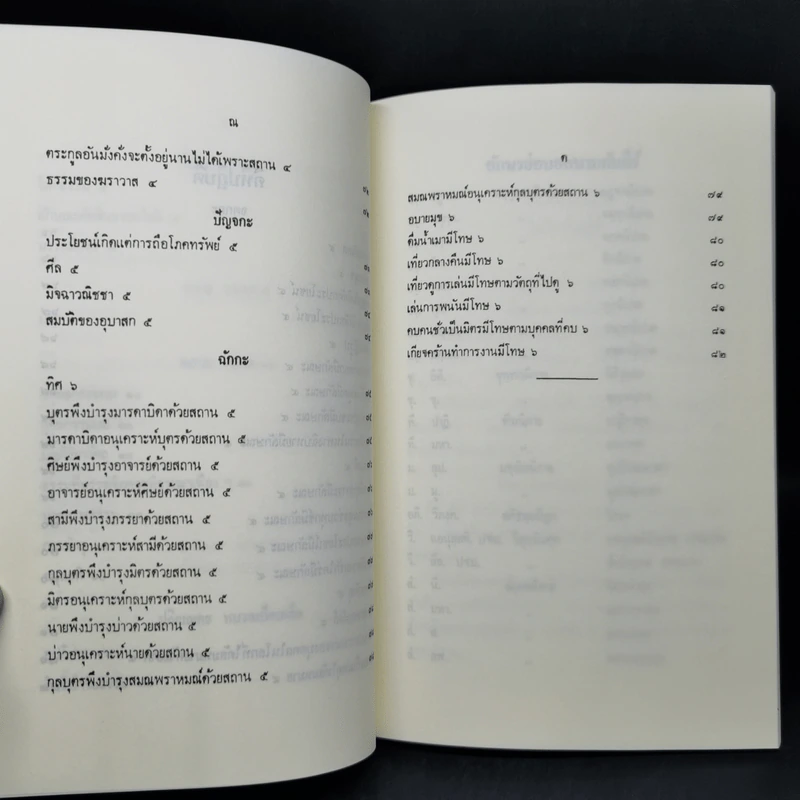 ณ
ตระกูลอันมั่งคั่งจะตั้งอยู่นานไม่ได้เพราะสถาน ๔
ธรรมของฆราวาส ๔
ปัญจกะ
ประโยชน์เกิดแต่การถือโภคทรัพย์ ๕
ศีล ๕
มิจฉาวณิชชา ๕
สมบัติของอุบาสก ๕
ฉักกะ
ทิศ ๖
บุตรพึงบำรุงมารดาบิดาด้วยสถาน ๕
มารดาบิดาอนุเคราะห์บุตรด้วยสถาน ๕
ศิษย์พึงบำรุงอาจารย์ด้วยสถาน ๕
อาจารย์อนุเคราะห์ศิษย์ด้วยสถาน ๕
สามีพึงบำรุงภรรยาด้วยสถาน ๕
ภรรยาอนุเคราะห์สามีด้วยสถาน ๕
กุลบุตรพึงบำรุงมิตรด้วยสถาน ๕
มิตรอนุเคราะห์กุลบุตรด้วยสถาน ๕
นายพึงบำรุงบ่าวด้วยสถาน ๕
บ่าวอนุเคราะห์นายด้วยสถาน ๕
กุลบุตรพึงบำรุงสมณพราหมณ์ด้วยสถาน ๕
ด
สมณพราหมณ์อนุเคราะห์กุลบุตรด้วยสถาน ๖ ๗๙
อบายมุข ๖ ๗๙
ดื่มน้ำเมามีโทษ ๖ ๘๐
เที่ยวกลางคืนมีโทษ ๖ ๘๐
เที่ยวดูการเล่นมีโทษตามวัตถุที่ไปดู ๖ ๘๐
เล่นการพนันมีโทษ ๖ ๘๑
คบคนชั่วเป็นมิตรมีโทษตามบุคคลที่คบ ๖ ๘๑
เกียจคร้านทำการงานมีโทษ ๖ ๘๒